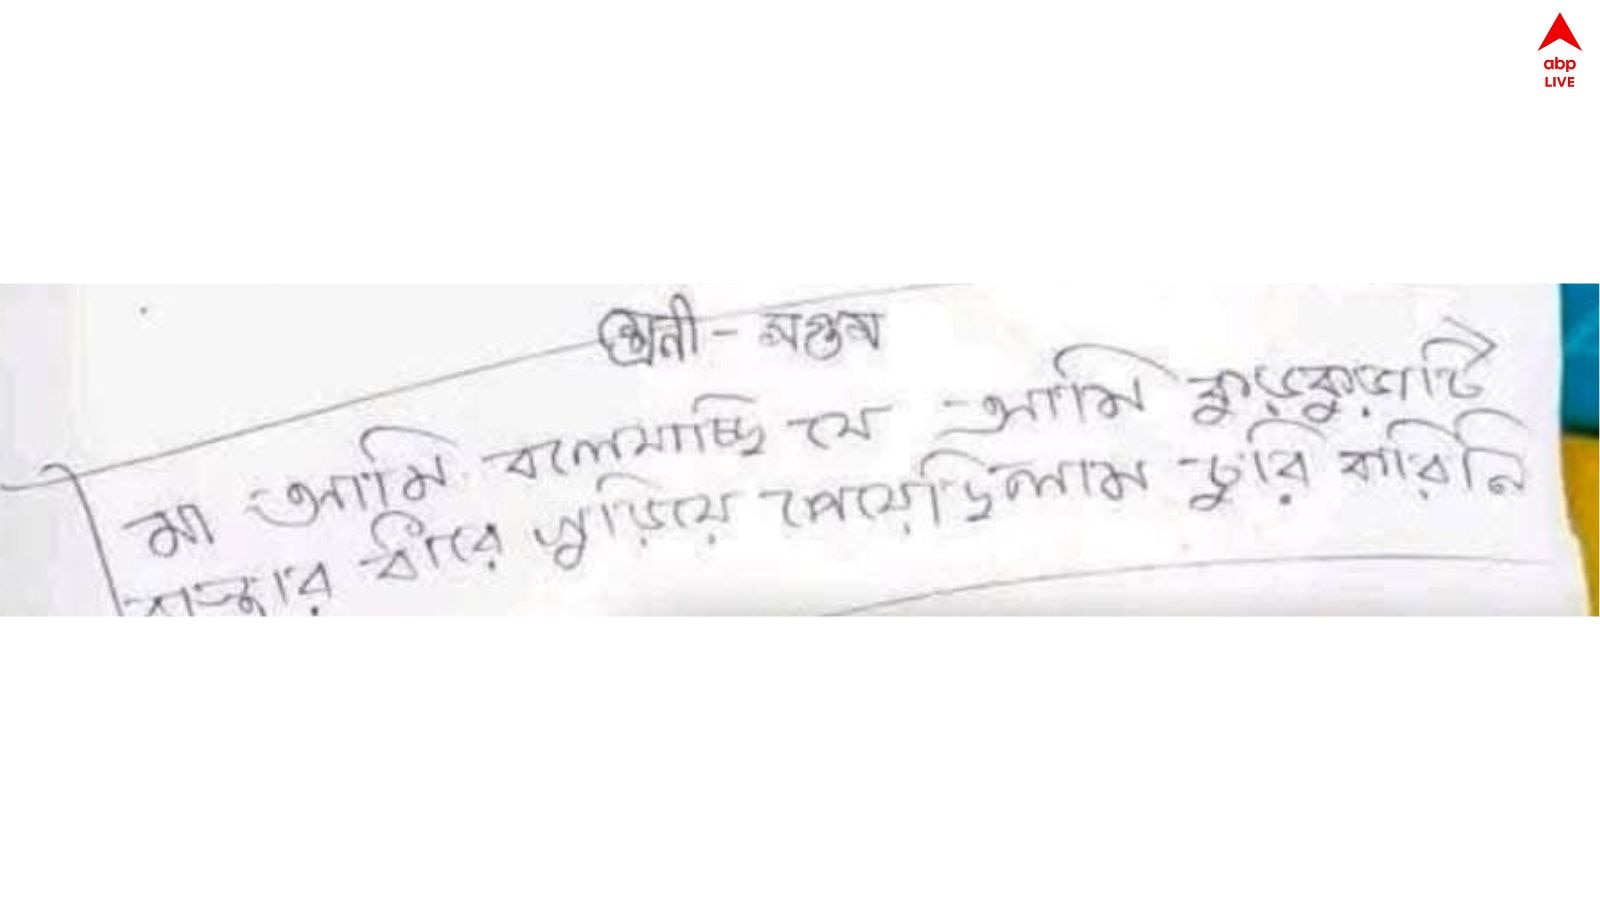 abp
LIVE
শ্রেনী - সপ্তম
মা আমি বলেযাচ্ছি যে আমি কুড়কুড়াটি
রাস্তার ধারে কুড়িয়ে পেয়েছিলাম চুরি করিনি